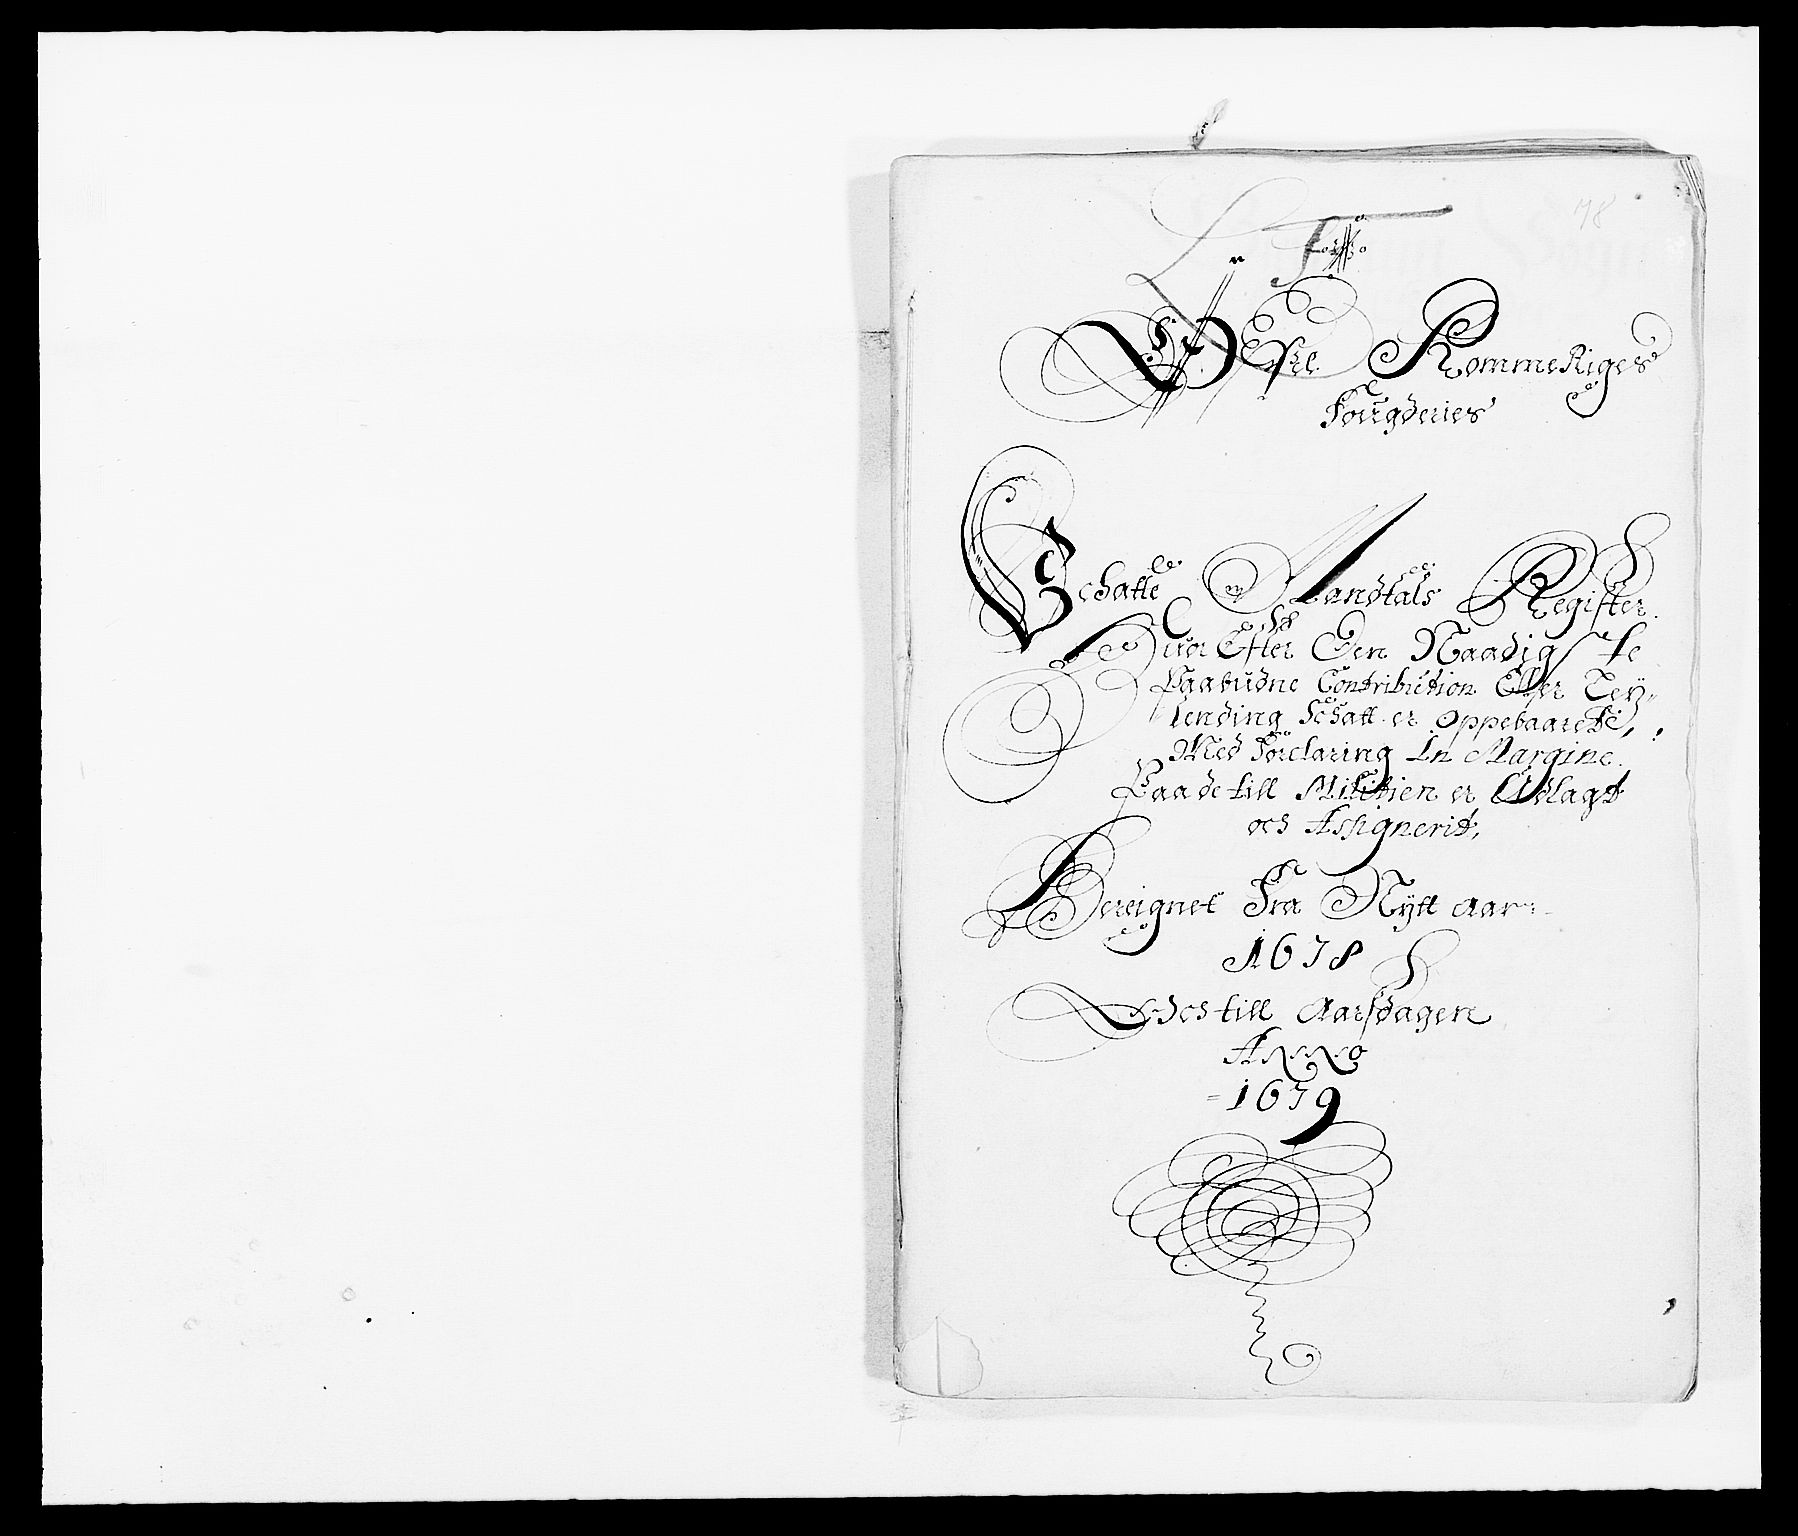 78
Øfre Rommeriges
Fougderies
Schatte Mandtals Register.
Huor Efter Den Naadigste
Paabudne Contribution Eller Ley-
lending Schatt er oppebaaret,
Med Forclaring In Margine.
Paade till Militien er Udlagt
och Assignerit,
Bereignet Fra Nytt aar
1678
Och till Aarsdagen
Anno
1679